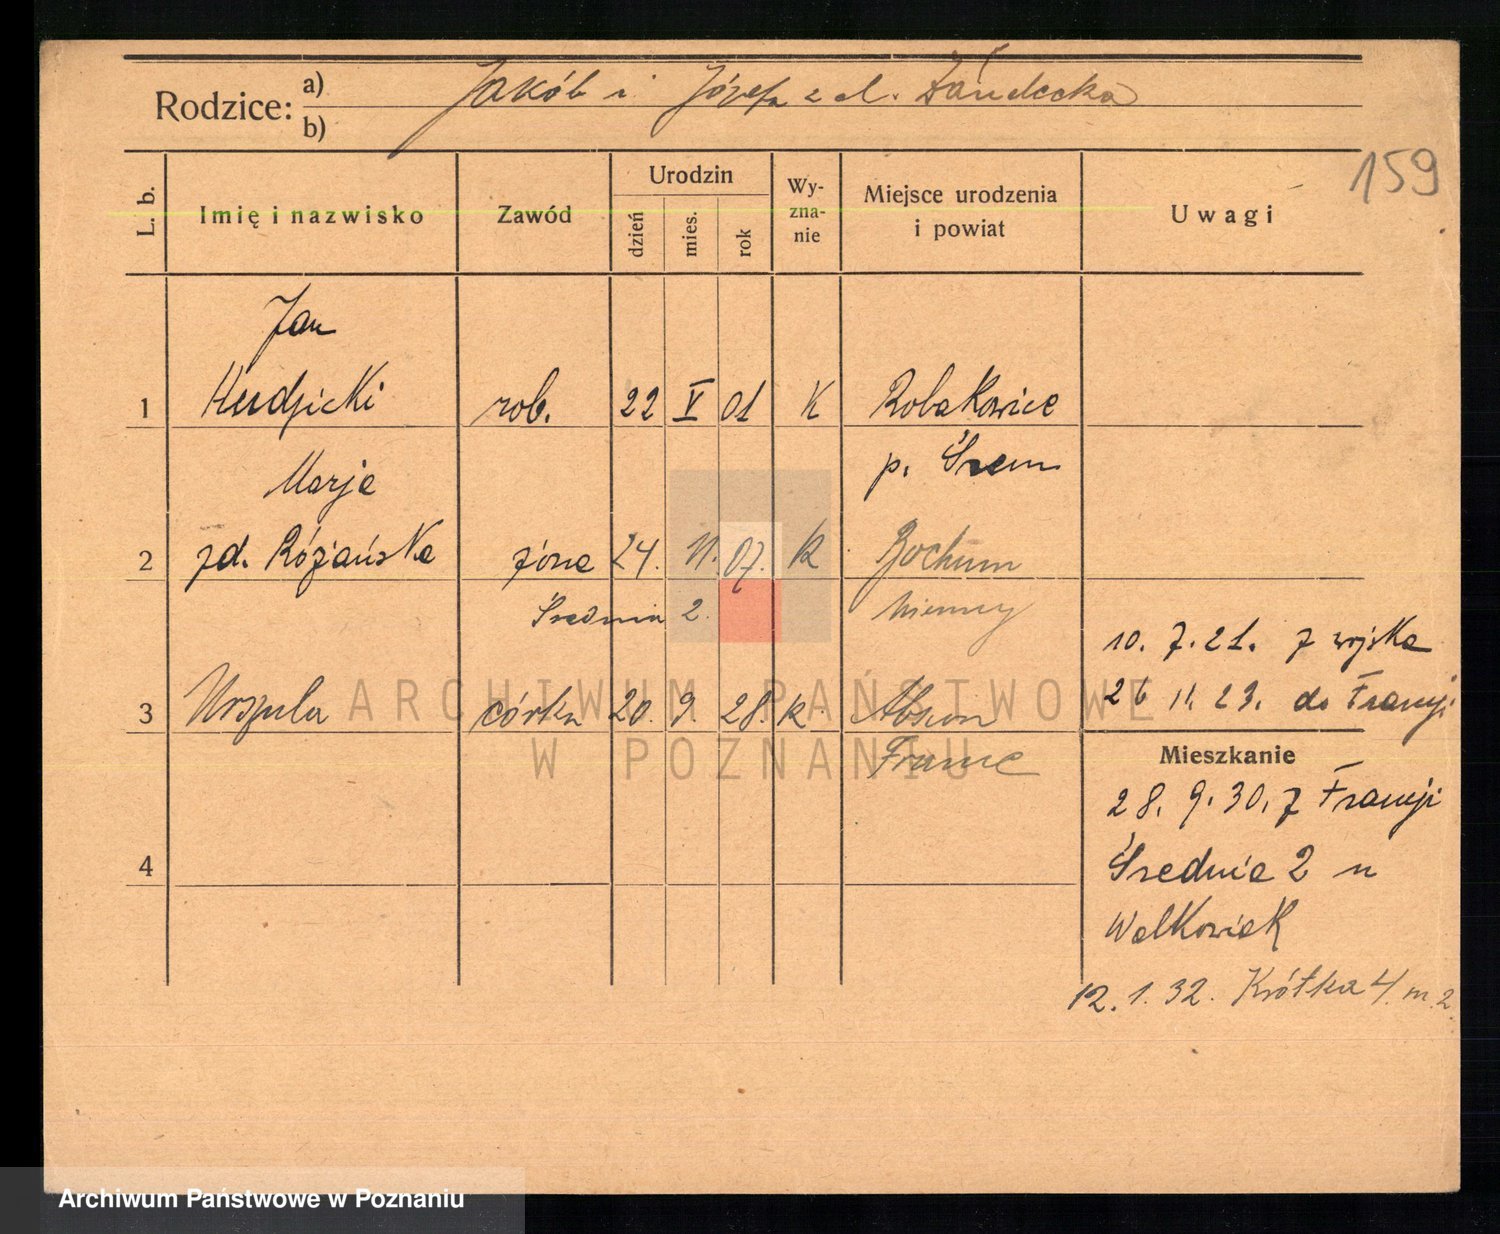 Rodzice: a) b) Jakób i Józefa z d.
159
L. b. Imię i nazwisko Zawód Urodzin dzień mies. rok Wy-zna-nie Miejsce urodzenia i powiat Uwagi
Jan
1 rob. 22 V 01 K Robakowice
p. Śrem
Marja
2 zd. Różańska żona 24. 11. 07. K Bochum
Średnia 2. Niemcy
10. 7. 21. z wojska
3 Urszula córka 20. 9. 28. k.
26 11. 23. do Francji
France
Mieszkanie
28. 9. 30. z Francji
4
Średnia 2 u
Walkowiak
12. 1. 32. Krótka 4. m. 2.
ARCHIWUM PAŃSTWOWE
W POZNANIU
Archiwum Państwowe w Poznaniu